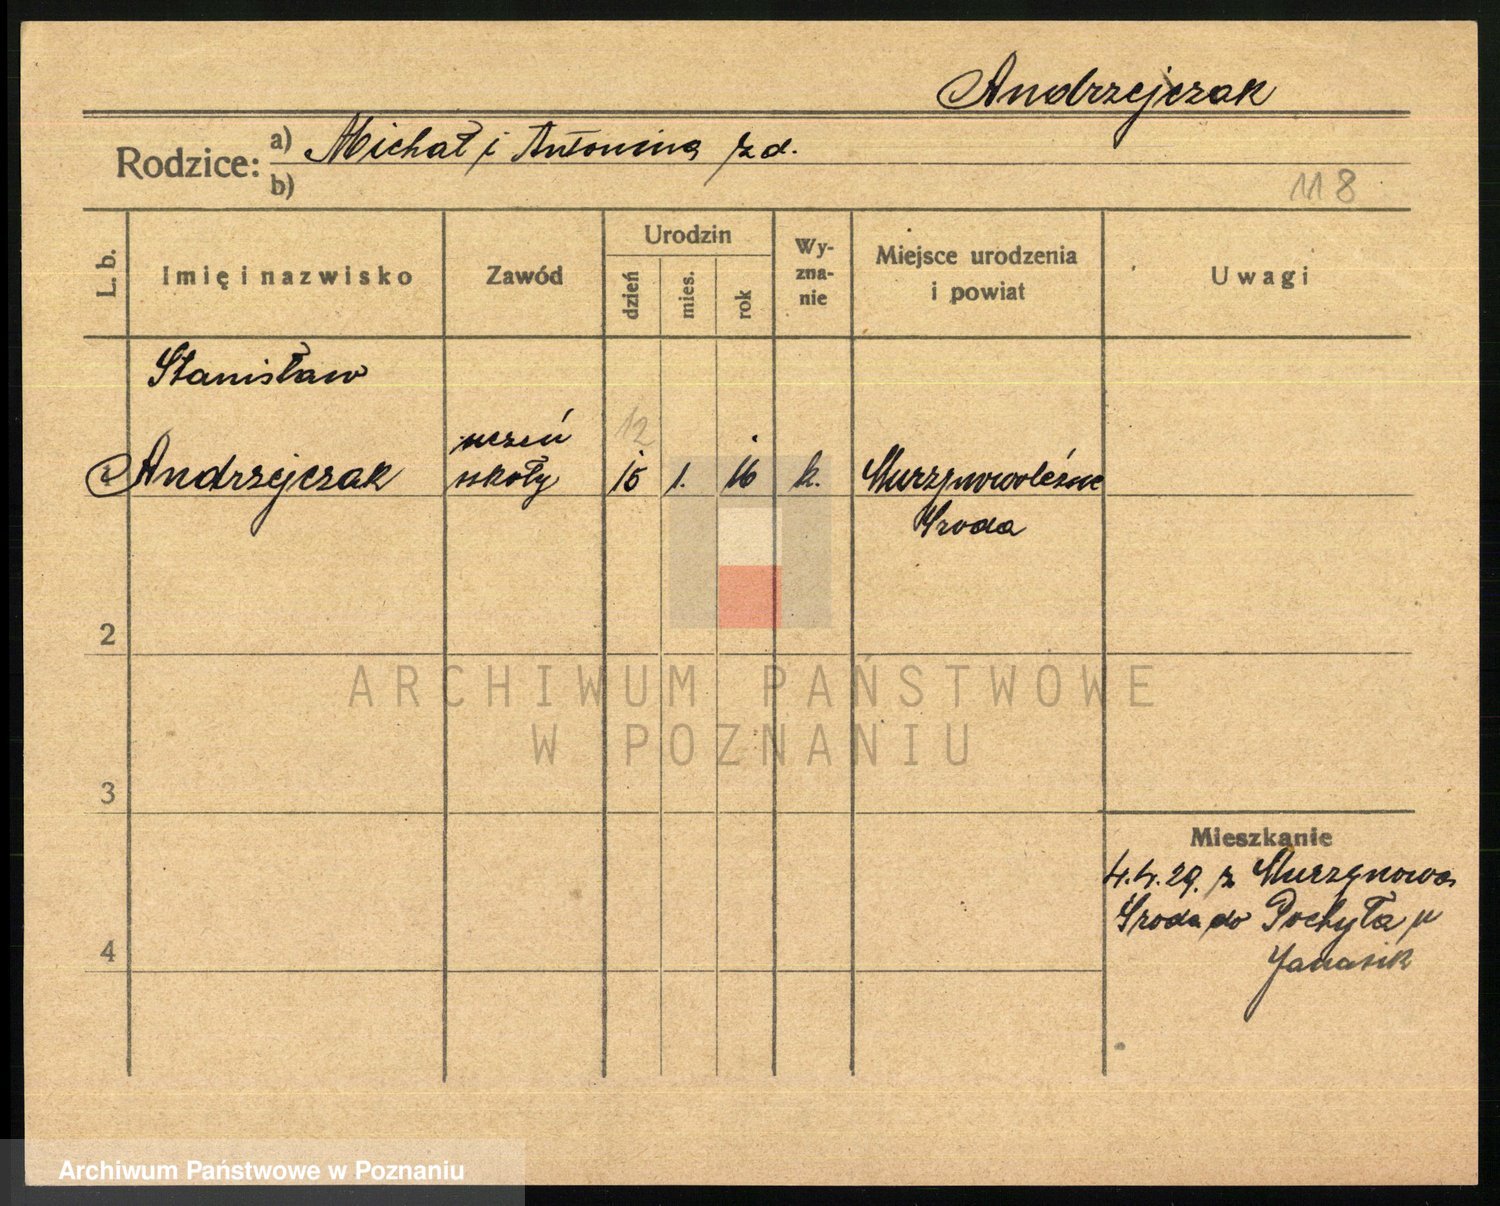 Andrzejczak
Rodzice: a) Michał i Antonina z d.
b)
118
L. b.
Imię i nazwisko
Zawód
Urodzin
dzień
mies.
rok
Wy-
zna-
nie
Miejsce urodzenia
i powiat
Uwagi
Stanisław
Andrzejczak
uczeń
szkoły
12
15
1.
16
k.
Murzynowoleśne
Środa
2
3
4
ARCHIWUM PAŃSTWOWE
W POZNANIU
Mieszkanie
4.4.29. z Murzynowa
Środa do Pochyła
Janasik
Archiwum Państwowe w Poznaniu